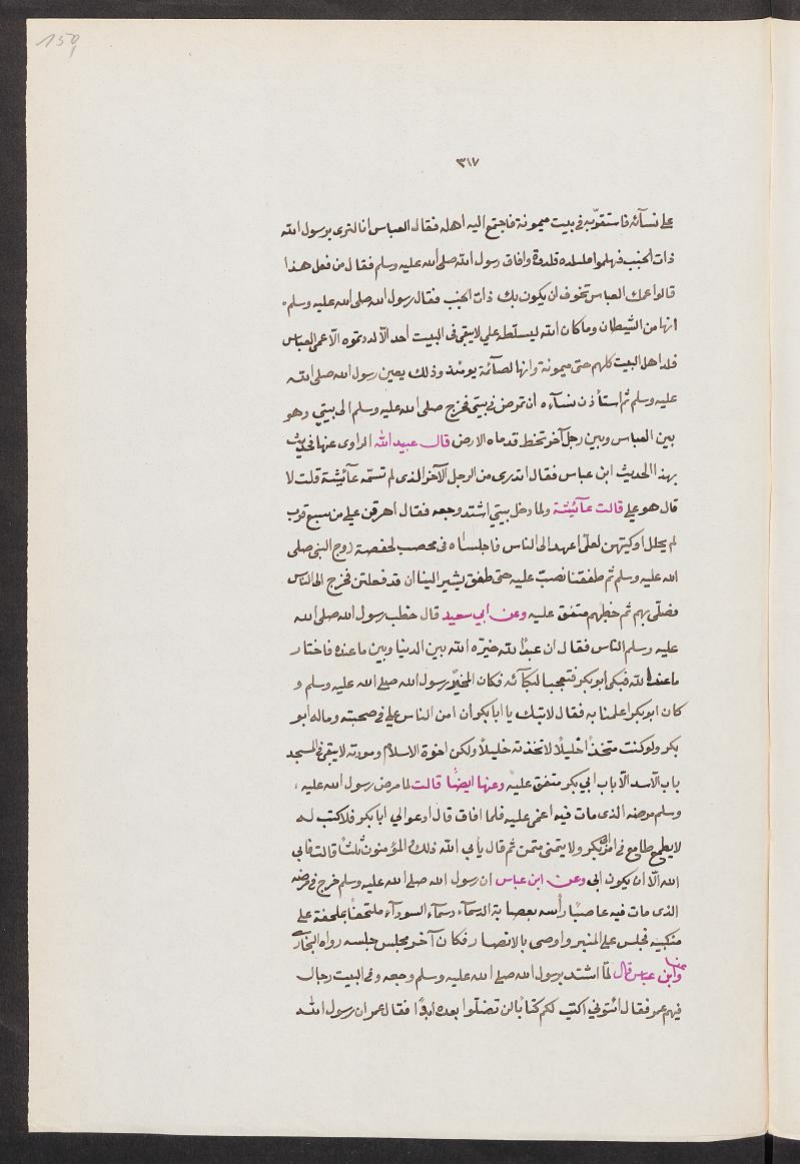 159
٣١٧
على نسآئه فاستقرّ به فى بيت ميمونة فاجتمع اليه اهله فقال العباس انا لنرى برسول الله
ذات الجنب فهلموا فلنلده فلدوه وافاق رسول الله صلى الله عليه وسلم فقال من فعل هذا
قالوا عمك العباس تخوف ان يكون بك ذات الجنب فقال رسول الله صلى الله عليه وسلم
انها من الشيطان وما كان الله ليسلّطه علي لا يبقى فى البيت احد الّا لددتموه الّا عمى العباس
فلد اهل البيت كلهم حتى ميمونة وانها لصآئمة يومئذ وذلك بعين رسول الله صلى الله
عليه وسلم ثم استأذن نسآءه ان تمرض فى بيتى فخرج صلى الله عليه وسلم الى بيتي وهو
بين العباس وبين رجل آخر تخط قدماه الارض قال عبيد الله الراوى عنها فحدثت
بهذا الحديث ابن عباس فقال اتدرى من الرجل الآخر الذى لم تسمّه عآئيشة قلت لا
قال هو علي قالت عآئيشة ولما دخل بيتي اشتد وجعه فقال اهرقن علي من سبع قرب
لم يحلل اوكيتهن لعلّى اعهد الى الناس فاجلسناه فى مخصب لحفصة زوج النبى صلى
الله عليه وسلم ثم طفقنا نصبّ عليه حتى طفق يشير الينا ان قد فعلتن فخرج الى الناس
فصلّى بهم ثم خطبهم متفق عليه وعن ابي سعيد قال خطب رسول الله صلى الله
عليه وسلم الناس فقال ان عبدًا لله خيّره الله بين الدنيا وبين ما عنده فاختار
ما عند الله فبكى ابو بكر فتعجبنا لبكآئه فكان المخيّر رسول الله صلى الله عليه وسلم و
كان ابو بكر اعلمنا به فقال لا تبك يا ابا بكر ان امن الناس علي فى صحبته وماله ابو
بكر ولو كنت متخذًا خليلًا لاتخذته خليلًا ولكن اخوة الاسلام ومودته لا يبقى فى المسجد
باب الّا سد الّا باب ابي بكر متفق عليه وعنها ايضًا قالت لما مرض رسول الله عليه
وسلم مرضه الذى مات فيه اغمى عليه فلما افاق قال ادعوا لي ابا بكر فلاكتب له
لا يطمع طامع فى امر ابى بكر ولا يتمنى متمن ثم قال يأبى الله ذلك والمؤمنون ثلثًا قالت فابى
الله الّا ان يكون ابى وعن ابن عباس ان رسول الله صلى الله عليه وسلم خرج فى مرضه
الذى مات فيه عاصبًا رأسه بعصابة الدسمآء دسمآء السودآء ملتحفًا بملحفة على
منكبيه فجلس على المنبر واوصى بالانصار فكان آخر مجلس جلسه رواه البخارى
وعن ابن عباس قال لمّا اشتد برسول الله صلى الله عليه وسلم وجعه وفى البيت رجال
فيهم عمر فقال ائتوني اكتب لكم كتابًا لن تضلّوا بعده ابدًا فقال عمر ان رسول الله